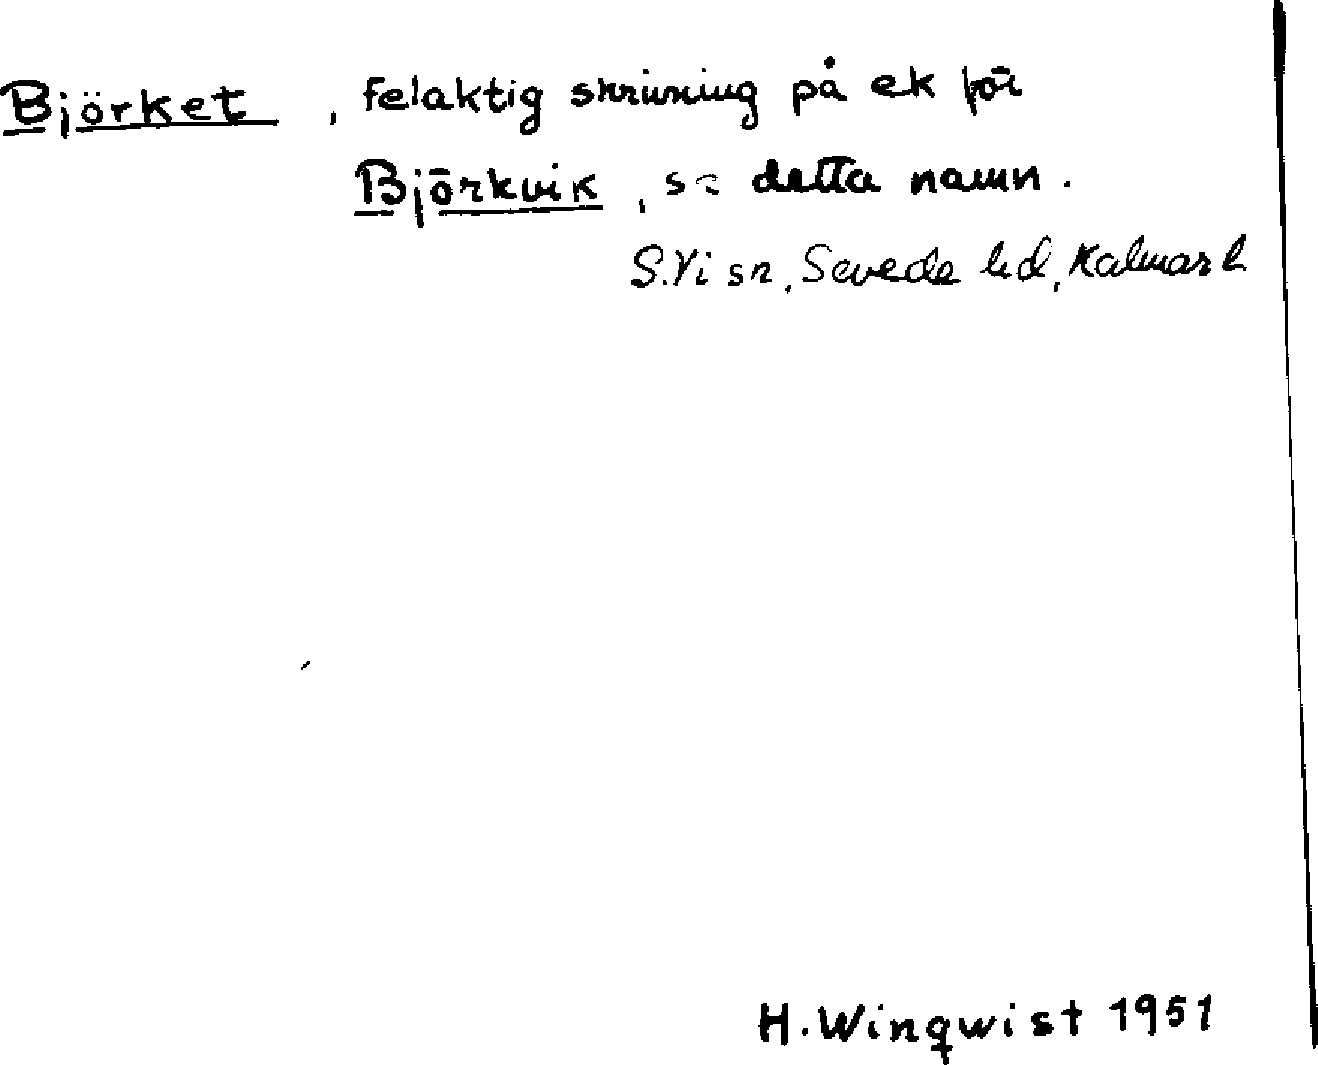 Björket, felaktig skrivning på ek för
Björkvik, se detta namn.
S.Vi sn, Sevede hd, Kalmar l
H. Winqwist 1951